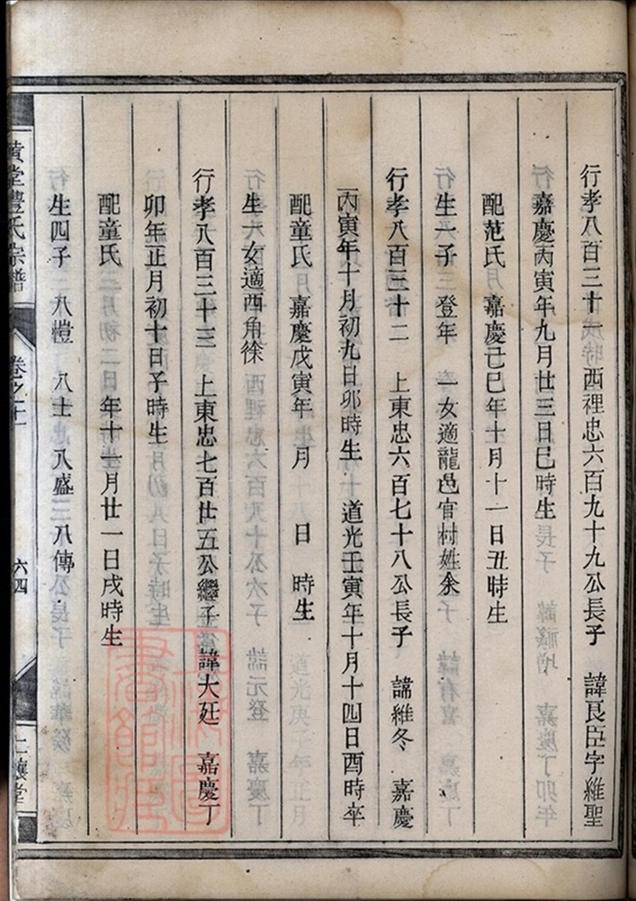 行孝八百三十一 西裡忠六百九十九公長子 諱良臣字維聖
嘉慶丙寅年九月廿三日巳時生
配范氏 嘉慶己巳年十月十一日丑時生
生一子 登年 一女適龍邑官村姓余
行孝八百三十二 上東忠六百七十八公長子 諱維冬 嘉慶
丙寅年十月初九日卯時生 道光壬寅年十月十四日酉時卒
配童氏 嘉慶戊寅年 月 日 時生
生一女適西角徐
行孝八百三十三 上東忠七百廿五公繼子 諱大廷 嘉慶丁
卯年正月初十日子時生
配童氏 年十一月廿一日戌時生
生四子 八愷 八士 八盛 八傳
黃堂豊氏宗譜 卷之 六四 堂